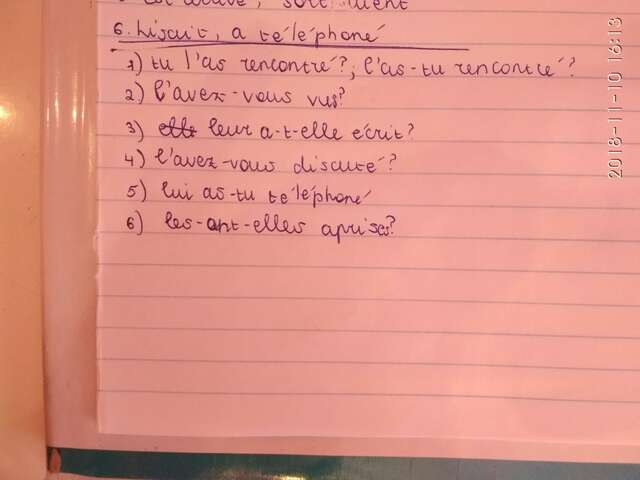 6. lisait, a téléphoné
1) tu l'as rencontré?, l'as-tu rencontré?
2) l'avez-vous vus?
3) elle leur a-t-elle écrit?
4) l'avez-vous discuté?
5) lui as-tu téléphoné
6) les-ont-elles aprises?
2018-11-10 16:13